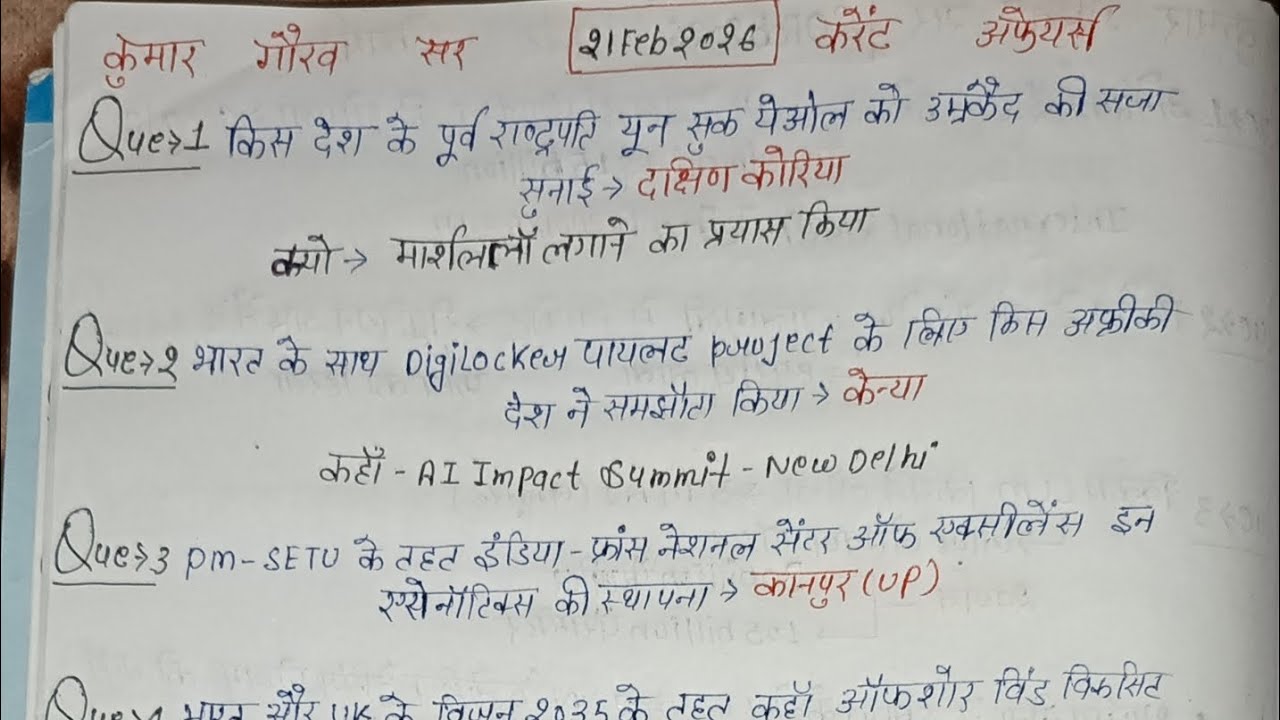 कुमार गौरव सर 21 Feb 2026 करेंट अफेयर्स
Que→1 किस देश के पूर्व राष्ट्रपति यून सुक येओल को उम्रकैद की सजा
सुनाई → दक्षिण कोरिया
क्यो → मार्शल लॉ लगाने का प्रयास किया
Que→2 भारत के साथ Digilocker पायलट project के लिए किस अफ्रीकी
देश ने समझौता किया → केन्या
कहाँ - AI Impact Summit - New Delhi
Que→3 PM-SETU के तहत इंडिया - फ्रांस नेशनल सेंटर ऑफ एक्सीलेंस इन
एरोनॉटिक्स की स्थापना → कानपुर (UP)
Que→4 भारत और UK के विजन 2035 के तहत कहाँ ऑफशोर विंड विकसित